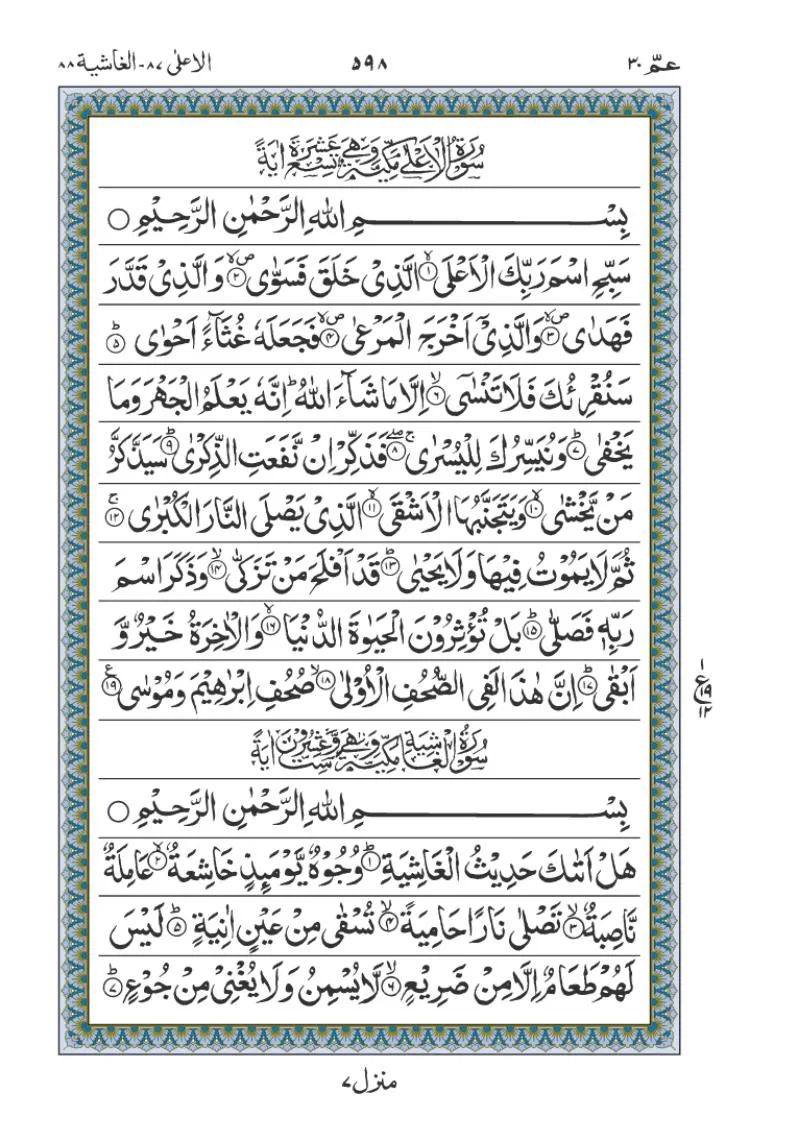 عمّ ٣٠ ٥٩٨ الاعلى ٨٧-الغاشية ٨٨
سُوْرَةُ الْاَعْلٰى مَكِّيَّةٌ وَّهِيَ تِسْعَ عَشْرَةَ اٰيَةً
بِسْــــــــــــمِ اللهِ الرَّحْمٰنِ الرَّحِيْمِ ○
سَبِّحِ اسْمَ رَبِّكَ الْاَعْلَى ۙ﴿١﴾ الَّذِيْ خَلَقَ فَسَوّٰى ۪ۙ﴿٢﴾ وَالَّذِيْ قَدَّرَ
فَهَدٰى ۪ۙ﴿٣﴾ وَالَّذِيْٓ اَخْرَجَ الْمَرْعٰى ۪ۙ﴿٤﴾ فَجَعَلَهٗ غُثَآءً اَحْوٰى ؕ﴿٥﴾
سَنُقْرِئُكَ فَلَا تَنْسٰٓى ۙ﴿٦﴾ اِلَّا مَا شَآءَ اللّٰهُ ؕ اِنَّهٗ يَعْلَمُ الْجَهْرَ وَمَا
يَخْفٰى ؕ﴿٧﴾ وَنُيَسِّرُكَ لِلْيُسْرٰى ۚۖ﴿٨﴾ فَذَكِّرْ اِنْ نَّفَعَتِ الذِّكْرٰى ؕ﴿٩﴾ سَيَذَّكَّرُ
مَنْ يَّخْشٰى ۙ﴿١٠﴾ وَيَتَجَنَّبُهَا الْاَشْقَى ۙ﴿١١﴾ الَّذِيْ يَصْلَى النَّارَ الْكُبْرٰى ۚ﴿١٢﴾
ثُمَّ لَا يَمُوْتُ فِيْهَا وَلَا يَحْيٰى ؕ﴿١٣﴾ قَدْ اَفْلَحَ مَنْ تَزَكّٰى ۙ﴿١٤﴾ وَذَكَرَ اسْمَ
رَبِّهٖ فَصَلّٰى ؕ﴿١٥﴾ بَلْ تُؤْثِرُوْنَ الْحَيٰوةَ الدُّنْيَا ۖ﴿١٦﴾ وَالْاٰخِرَةُ خَيْرٌ وَّ
اَبْقٰى ؕ﴿١٧﴾ اِنَّ هٰذَا لَفِي الصُّحُفِ الْاُوْلٰى ۙ﴿١٨﴾ صُحُفِ اِبْرٰهِيْمَ وَمُوْسٰى ﴿١٩﴾ ع
١
ع ١٩
١٢
سُوْرَةُ الْغَاشِيَةِ مَكِّيَّةٌ وَّهِيَ سِتٌّ وَّعِشْرُوْنَ اٰيَةً
بِسْــــــــــــمِ اللهِ الرَّحْمٰنِ الرَّحِيْمِ ○
هَلْ اَتٰىكَ حَدِيْثُ الْغَاشِيَةِ ؕ﴿١﴾ وُجُوْهٌ يَّوْمَئِذٍ خَاشِعَةٌ ۙ﴿٢﴾ عَامِلَةٌ
نَّاصِبَةٌ ۙ﴿٣﴾ تَصْلٰى نَارًا حَامِيَةً ۙ﴿٤﴾ تُسْقٰى مِنْ عَيْنٍ اٰنِيَةٍ ؕ﴿٥﴾ لَيْسَ
لَهُمْ طَعَامٌ اِلَّا مِنْ ضَرِيْعٍ ۙ﴿٦﴾ لَّا يُسْمِنُ وَلَا يُغْنِيْ مِنْ جُوْعٍ ؕ﴿٧﴾
منزل ٧